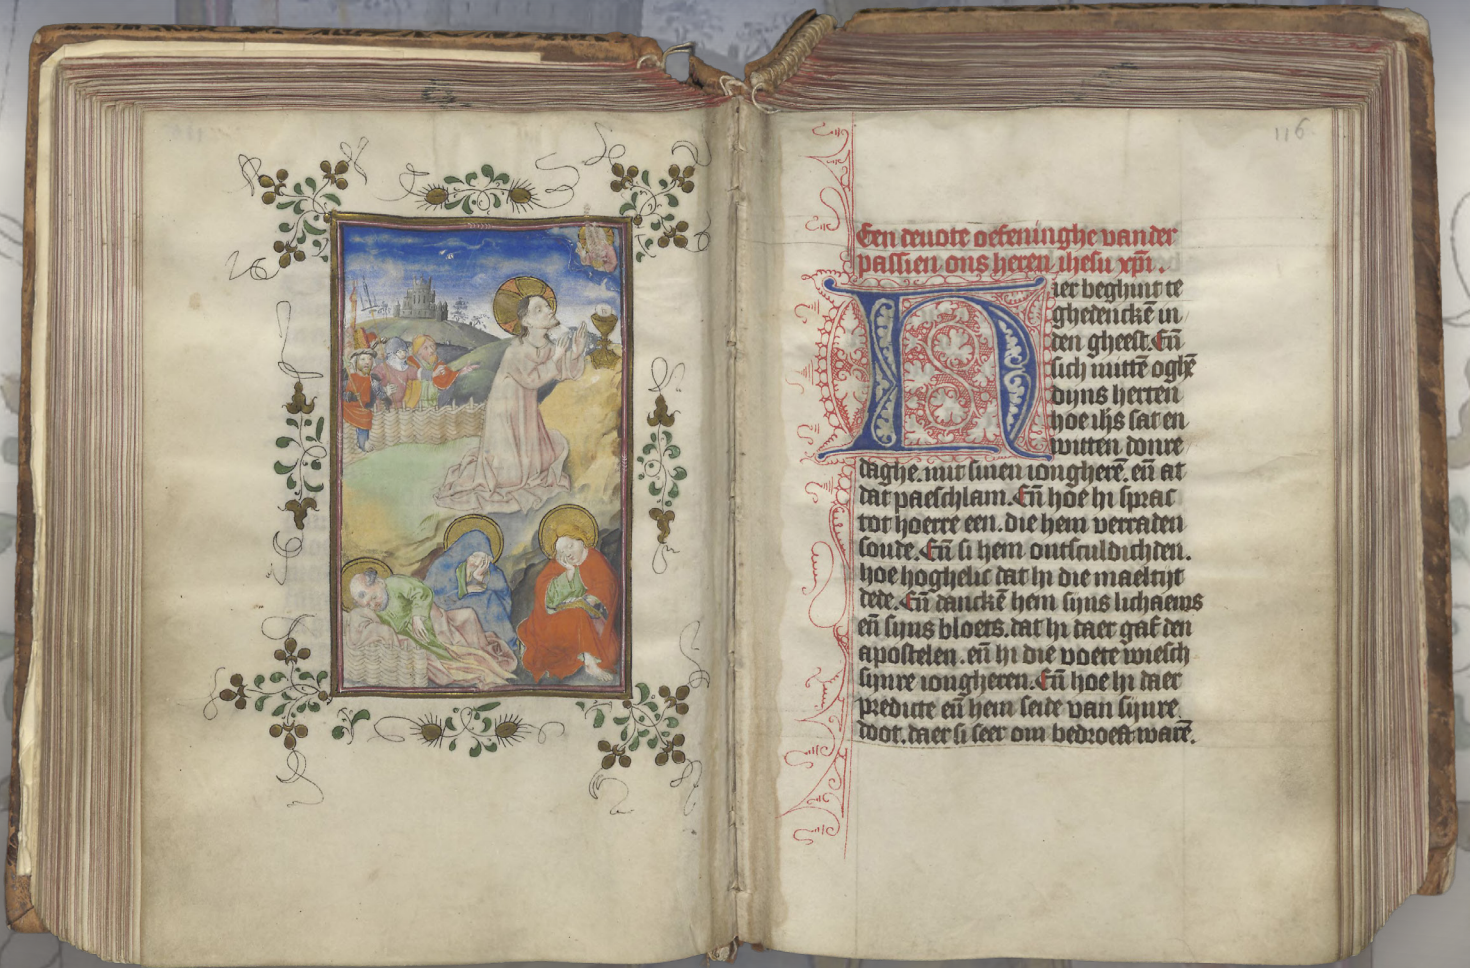 116
Een deuote oefeninghe van der
passien ons heren ihesu xp̄i.
Hier beghint te
ghedenckē in
den gheest. En̄
sich mittē oghē
dijns herten
hoe ih̄s sat en
witten donre
daghe. mit sinen iongherē. en̄ at
dat paeschlam. En̄ hoe hi sprac
tot hoerre een. die hem verraden
soude. En̄ si hem ontsculdichden.
hoe hoghelic dat hi die maeltijt
dede. En̄ danckē hem sijns lichaems
en̄ sijns bloets. dat hi daer gaf den
apostelen. en̄ hi die voete wiesch
sijnre iongheren. En̄ hoe hi daer
predicte en̄ hem seide van sijnre
doot. daer si seer om bedroeft warē.